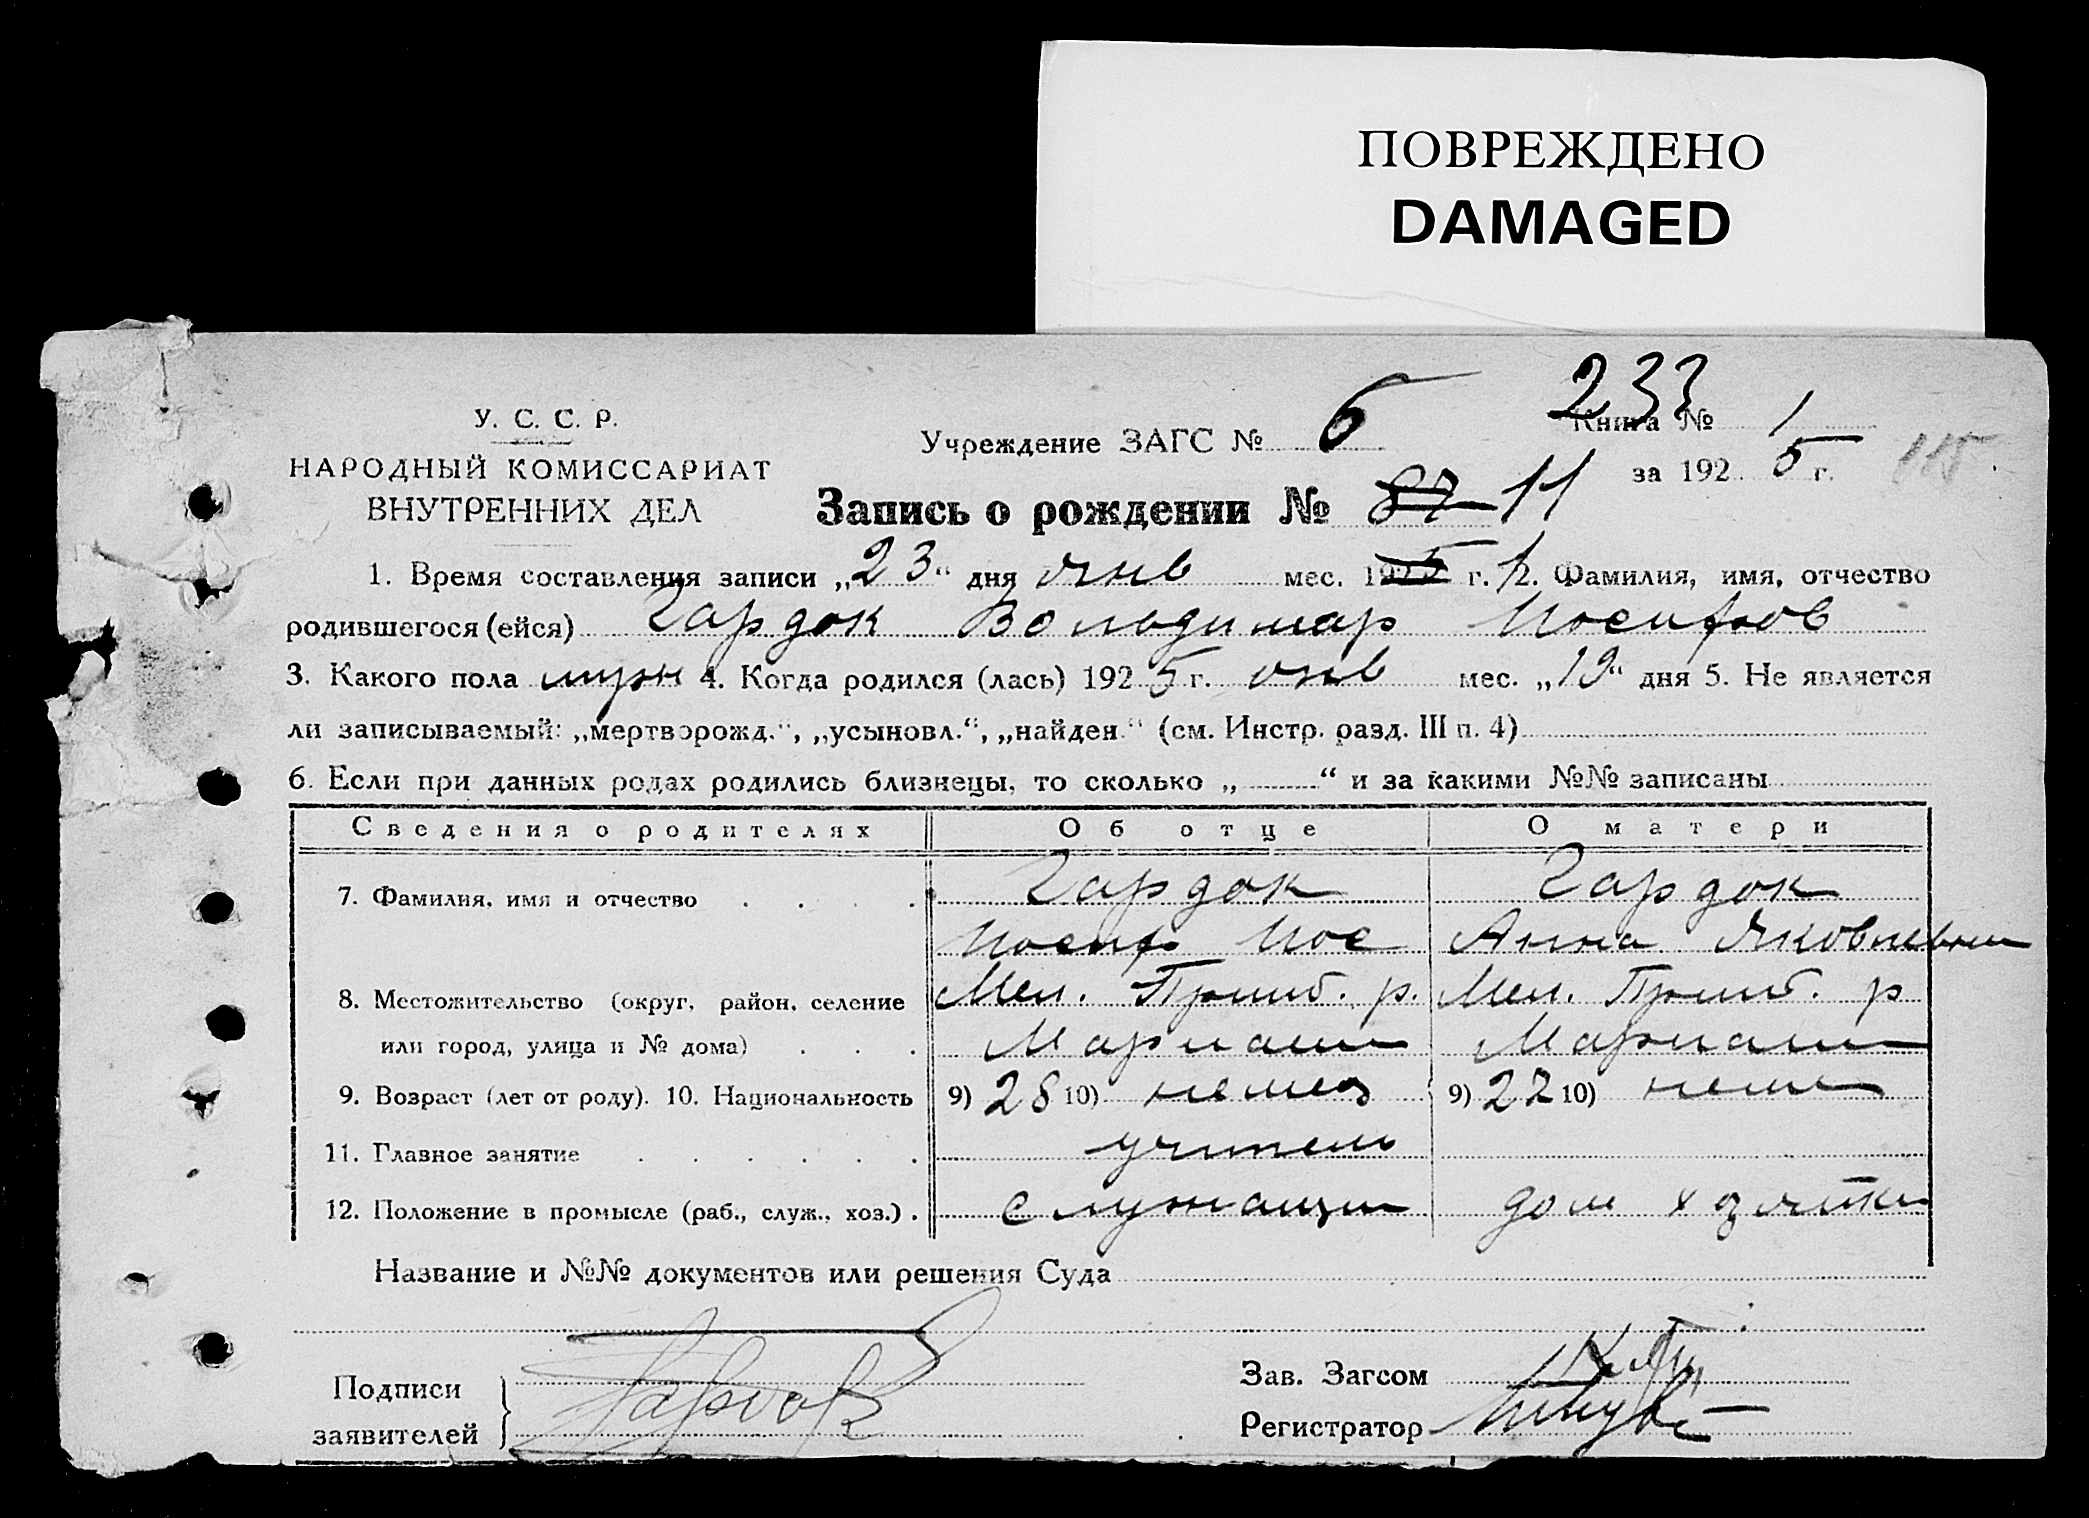 ПОВРЕЖДЕНО
DAMAGED
233
У. С. С. Р.
НАРОДНЫЙ КОМИССАРИАТ
ВНУТРЕННИХ ДЕЛ
Учреждение ЗАГС № 6
Книга № 1
за 192 5 г. 115
Запись о рождении № 87 11
1. Время составления записи „23“ дня янв мес. 1925 г. 2. Фамилия, имя, отчество
родившегося (ейся) Гардок Володимар Иосифов
3. Какого пола муж 4. Когда родился (лась) 192 5 г. янв мес. „19“ дня 5. Не является
ли записываемый: „мертворожд.“, „усыновл.“, „найден.“ (см. Инстр. разд. III п. 4)
6. Если при данных родах родились близнецы, то сколько „ “ и за какими №№ записаны
Сведения о родителях Об отце О матери
7. Фамилия, имя и отчество Гардок Гардок
Иосиф Иос Анна Яковлевна
8. Местожительство (округ, район, селение Мел. Пришб. р. Мел. Пришб. р
или город, улица и № дома)
9. Возраст (лет от роду). 10. Национальность 9) 28 10) немец 9) 22 10) немк
11. Главное занятие учитель
12. Положение в промысле (раб., служ., хоз.) служащи дом хозяйка
Название и №№ документов или решения Суда
Подписи
заявителей Гардок
Зав. Загсом
Регистратор